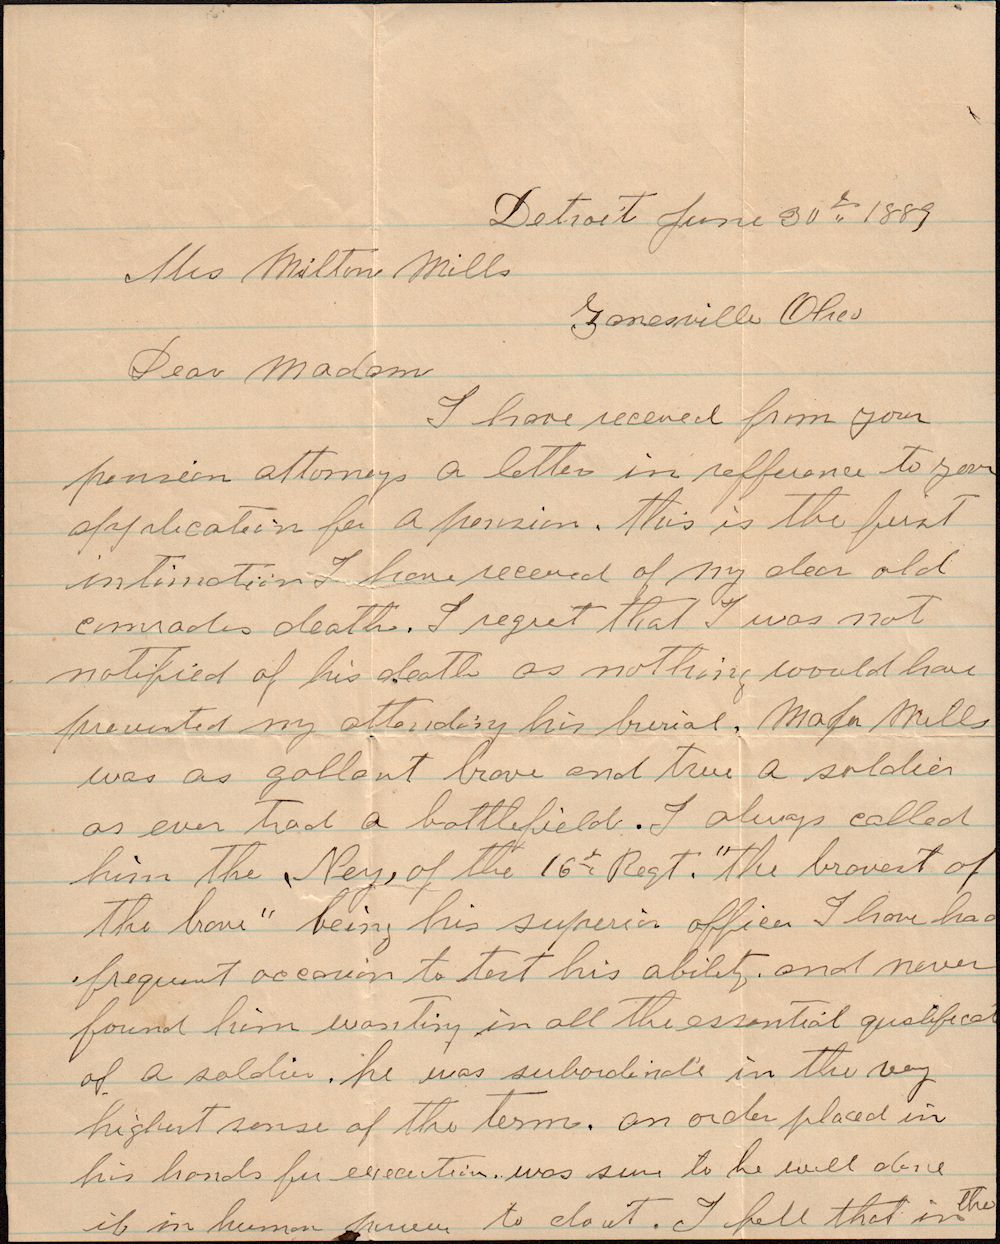 Detroit June 30th 1889
Mrs Milton Mills
Zanesville Ohio
Dear Madam
I have receved from your
pension attorneys a letter in refferance to your
application for a pension. this is the first
intimation I have receved of my dear old
comrades death. I regret that I was not
notified of his death as nothing would have
prevented my attending his burial. Major Mills
was as gallant brave and true a soldier
as ever trod a battlefield. I always called
him the "Ney" of the 16th Regt. "the bravest of
the brave" being his superior officer I have had
frequent occasion to test his ability. and never
found him wanting in all the essential qualificat
of a soldier. he was subordinate in the very
highest sense of the term. an order placed in
his hands for execution. was sure to be well done
if in human power to do it. I fell that in the